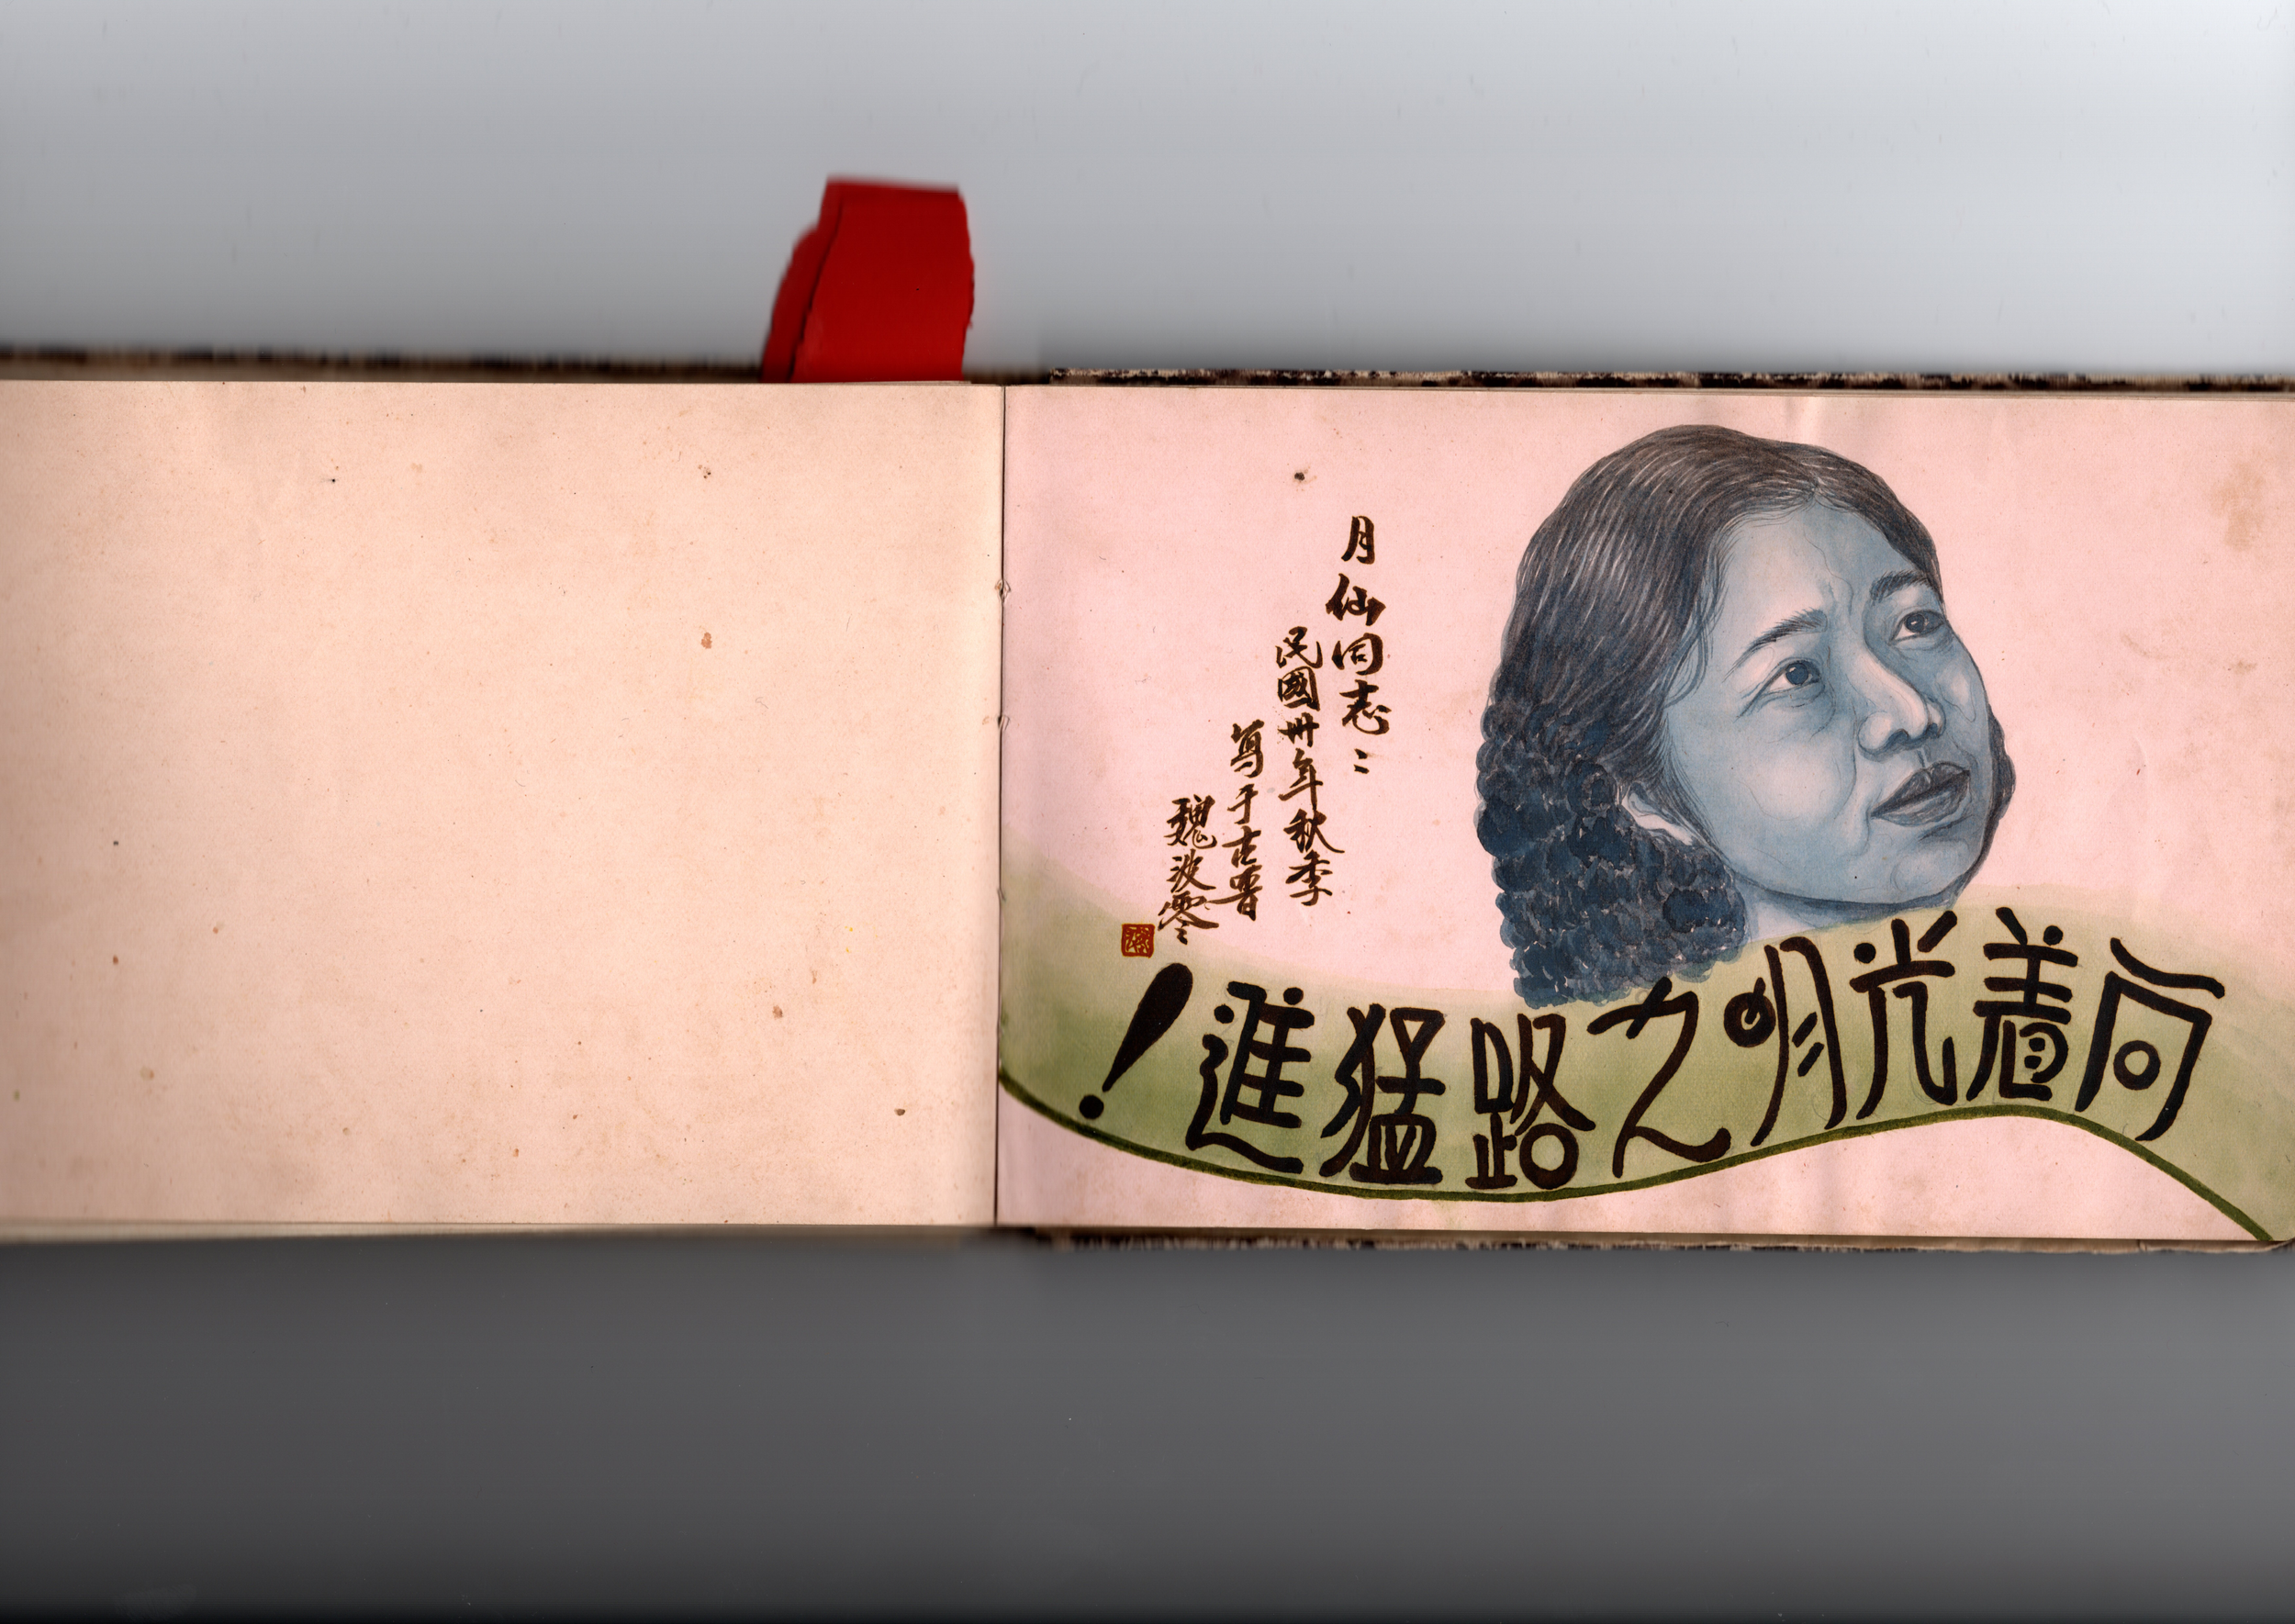 月仙同志：
民國卅年秋季
寫于古晉
魏波零
向着光明之路猛進！